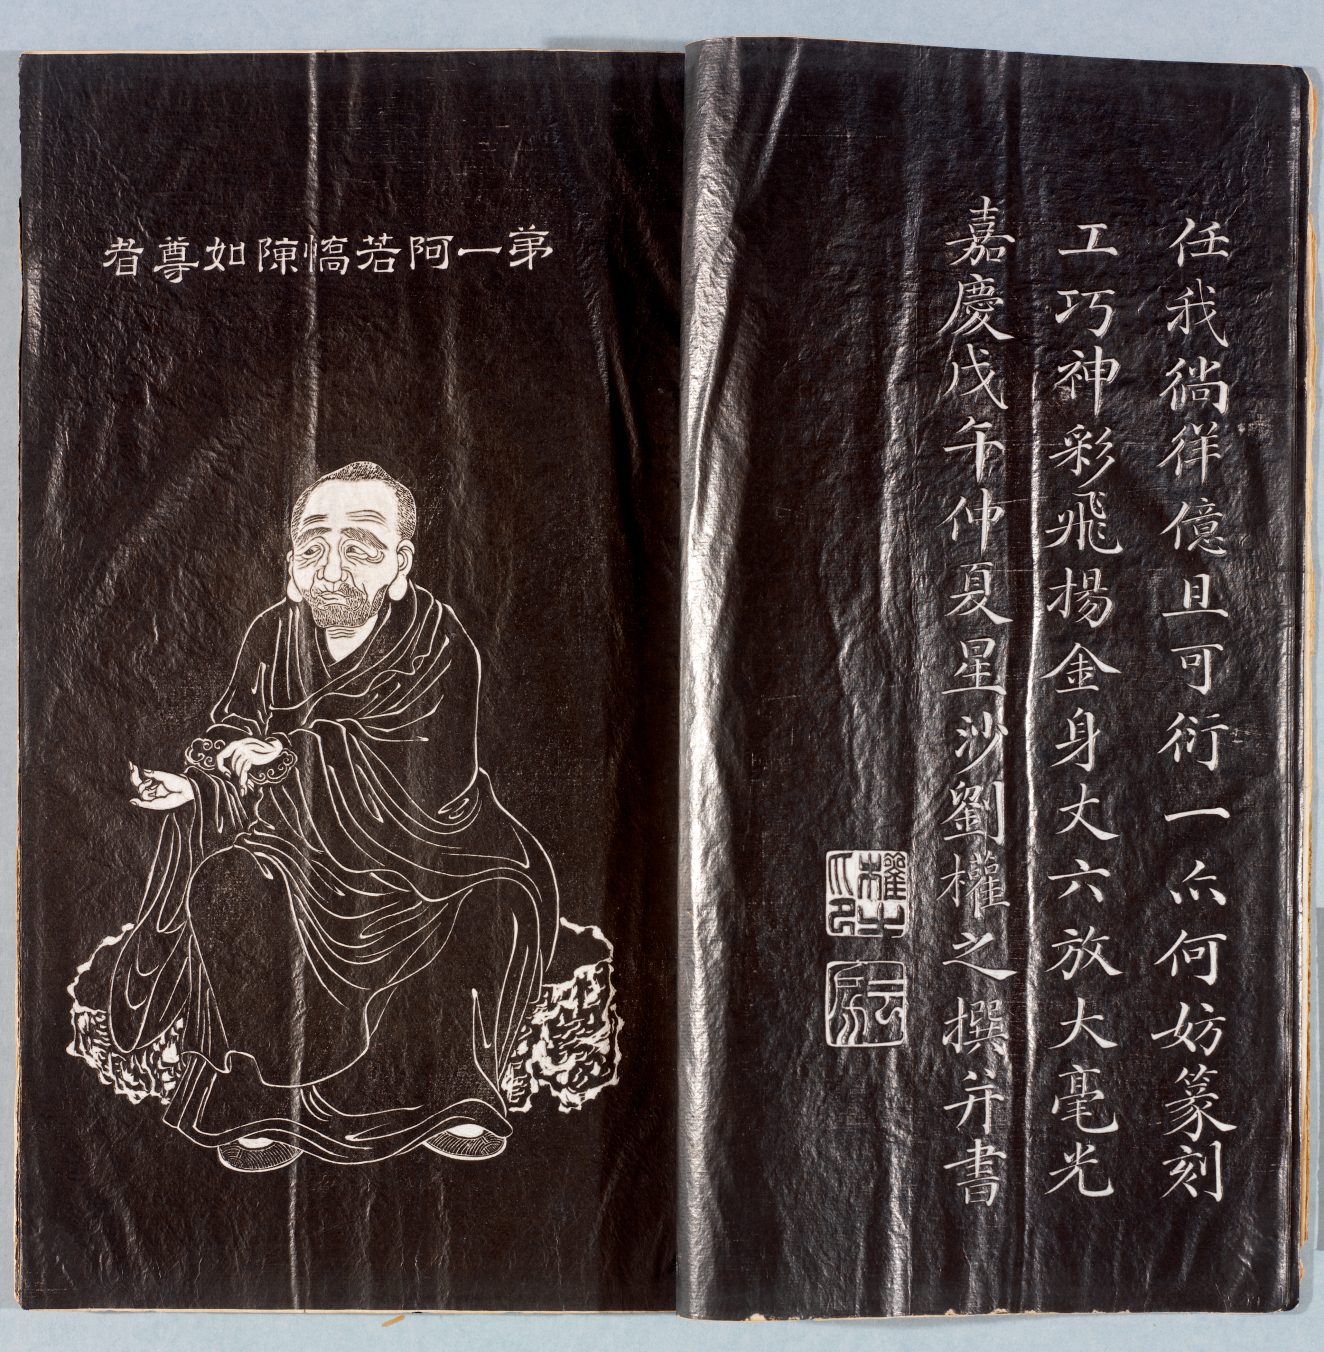 任我徜徉億且可衍一尒何妨篆刻
工巧神彩飛揚金身丈六放大毫光
嘉慶戊午仲夏星沙劉權之撰并書
權之
弟一阿若憍陳如尊者